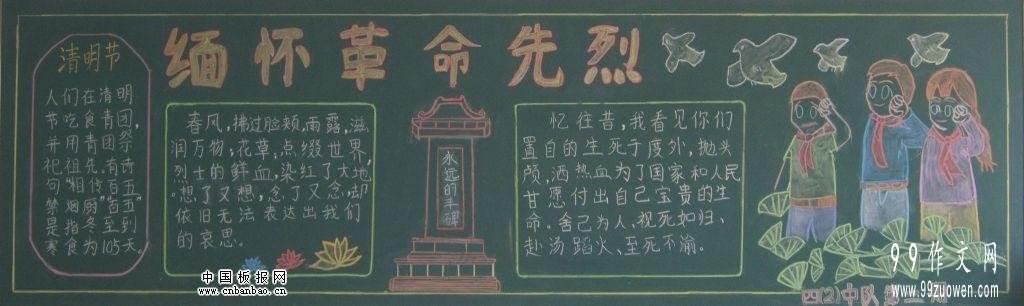 缅怀革命先烈
清明节
人们在清明
节吃食青团,
并用青团祭
祀祖先,有诗
句“相传百五
禁烟厨”“百五”
是指冬至到
寒食为105天。
春风,拂过脸颊,雨露,滋
润万物,花草,点缀世界,
烈士的鲜血,染红了大地,
“想了又想,念了又念,却
依旧无法表达出我们
的哀思。
永远的丰碑
忆往昔,我看见你们
置自的生死于度外,抛头
颅,洒热血为了国家和人民
甘愿付出自己宝贵的生
命。舍己为人,视死如归、
赴汤蹈火、至死不渝。
中国板报网
www.cnbanbao.cn
四(2)中队
99作文网
www.99zuowen.com